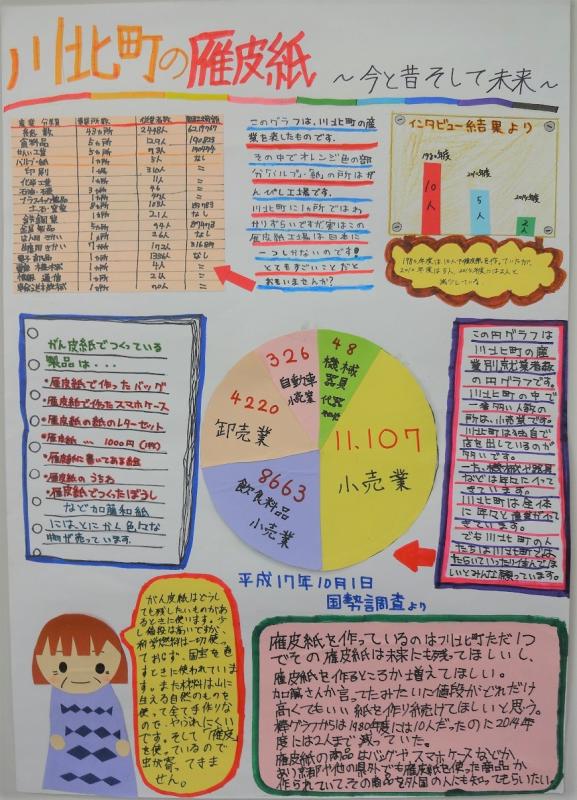 川北町の雁皮紙
～今と昔そして未来～
産業分類 事業所数 従業者数
総数 43ヵ所
食料品 5ヵ所
せんい工業 5ヵ所
パルプ・紙 1ヵ所 5人 なし
印刷 1ヵ所 310人 〃
化学工業 1ヵ所 11人 〃
石油・石炭
プラスチック製品
土石・窯業
鉄鋼業 1ヵ所 21人 なし
金属製品
はん用きかい
生産用きかい
電子部品 1ヵ所
電気機械
情報通信 1ヵ所
輸送用機械 1ヵ所
このグラフは、川北町の産
業を表したものです。
その中でオレンジ色の部
分(パルプ・紙)の所はが
んぴし工場です。
川北町に1ヵ所ではわ
かりずらいですが実はこの
雁皮紙工場は日本に
一つしかないのです!
とてもすごいことだと
おもいませんか?
インタビュー結果より
1980年度
10人
5人
2014年度
2人
1980年度は10人で雁皮紙を作っていたが、
減少している。
がん皮紙でつくっている
製品は・・・
・雁皮紙で作ったバッグ
・雁皮紙で作ったスマホケース
・雁皮紙の紙のレターセット
・雁皮紙 … 1000円(1枚)
・雁皮紙に書いてある絵
・雁皮紙のうちわ
・雁皮紙でつくったぼうし
など加藤和紙
にはとにかく色々な
物が売っています。
48
機械
器具
326
自動車
小売業
4220
卸売業
8663
飲食料品
小売業
11.107
小売業
平成17年10月1日
国勢調査より
この円グラフは
川北町の産
業別就業者数
の円グラフです。
川北町の中で
一番多い人数の
所は、小売業です。
川北町は独自で
店を出しているのが
多いです。
一方、機械や器具
などは年々にへって
きています。
川北町は全体
に年々と農業がへって
きています。
でも川北町の人
たちは川北町では
たらいていったり住んでほ
しいとみんな願っています。
がん皮紙はどうし
ても残したいものがあ
るときに使います。少
し値段は高いですが、
科学燃料は一切使っ
ておらず、国宝を直
すときに使われていま
す。また材料は山に
生える自然のものを
使って全て手作りなの
で、やぶれにくい
です。そして「雁皮」
を使っているので
虫が寄ってきま
せん。
雁皮紙を作っているのは川北町ただ1つ
でその雁皮紙は未来にも残ってほしいし、
雁皮紙を作るところが増えてほしい。
加藤さんが言ってたみたいに値段がどれだけ
高くてもいい紙を作り続けてほしいと思う。
棒グラフからは1980年度には10人だったのに2014年
度には2人まで減っていた。
雁皮紙の商品はバッグやスマホケースなどが
あり京都や他の県外でも雁皮紙を使った商品が
作られていて、その商品を外国の人にも知ってもらいたい。